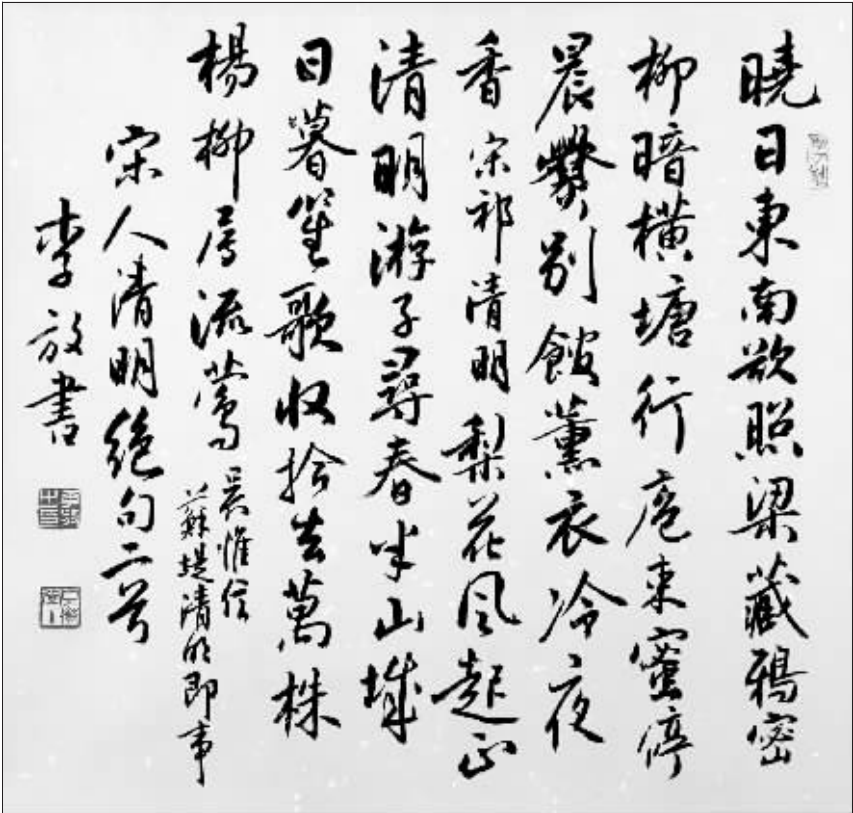 曉日東南欲照梁藏鴉密
柳暗橫塘行庖束蜜停
晨爨別館薰衣冷夜
香宋祁清明梨花風起正
清明游子尋春半出城
日暮笙歌收拾去萬株
楊柳屬流鶯吳惟信
蘇堤清明即事
宋人清明絕句二首
李放書